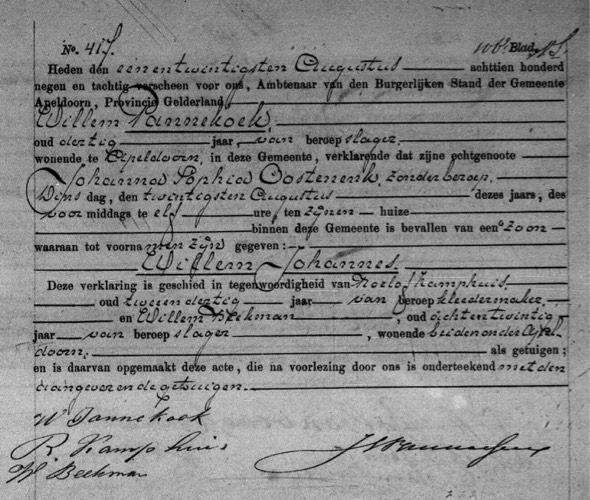 No. 417. Blad
Heden den eenentwintigsten Augustus achttien honderd
negen en tachtig verscheen voor ons, Ambtenaar van den Burgerlijken Stand der Gemeente
Apeldoorn, Provincie Gelderland
Willem Pannekoek,
oud dertig jaar, van beroep slager,
wonende te Apeldoorn, in deze Gemeente, verklarende dat zijne echtgenoote
Johanna Sophia Oostenenk, zonder beroep,
Dins dag, den twintigsten Augustus dezes jaars, des
voor middags te elf ure, ten zijnen huize
binnen deze Gemeente is bevallen van een zoon
waaraan tot voornamen zijn gegeven:
Willem Johannes.
Deze verklaring is geschied in tegenwoordigheid van Roelof Kamphuis,
oud tweeendertig jaar van beroep kleedermaker,
en Willem Beekman, oud achtentwintig
jaar van beroep slager, wonende beiden onder Apel
doorn. als getuigen;
en is daarvan opgemaakt deze acte, die na voorlezing door ons is onderteekend met den
aangever en de getuigen.
W Pannekoek
R. Kamphuis
W Beekman